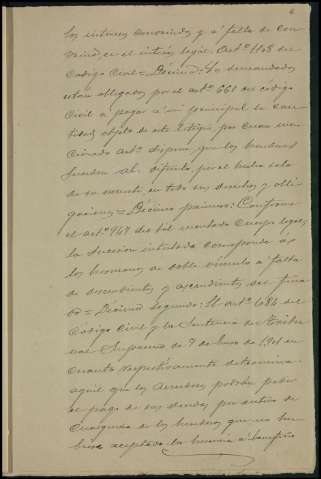 6
los intereses convenidos y á falta de con-
venio, en el interés legal. Artº 1108 del
Código Civil = Décimo: Los demandados
están obligados por el artº 661 del código
Civil á pagar á mi principal la can-
tidad objeto de este litigio, por cuan men-
cionado artº dispone que los herederos
suceden al difunto, por el hecho solo
de su muerte, en todos sus derechos y obli-
gaciones = Décimo primero: Conforme
el artº 947 del tal mentado cuerpo legal,
la sucesión intestada corresponde á
los hermanos de doble vínculo á falta
de descendientes y ascendientes del fina-
do = Décimo segundo: El artº 1084 del
Código Civil y la Sentencia del Tribu-
nal Supremo de 7 de Enero de 1901 en
cuanto respectivamente determinan
aquel que los acreedores podrán pedir
el pago de sus deudas por entero de
cualquiera de los herederos que no hu-
biere aceptado la herencia á beneficio